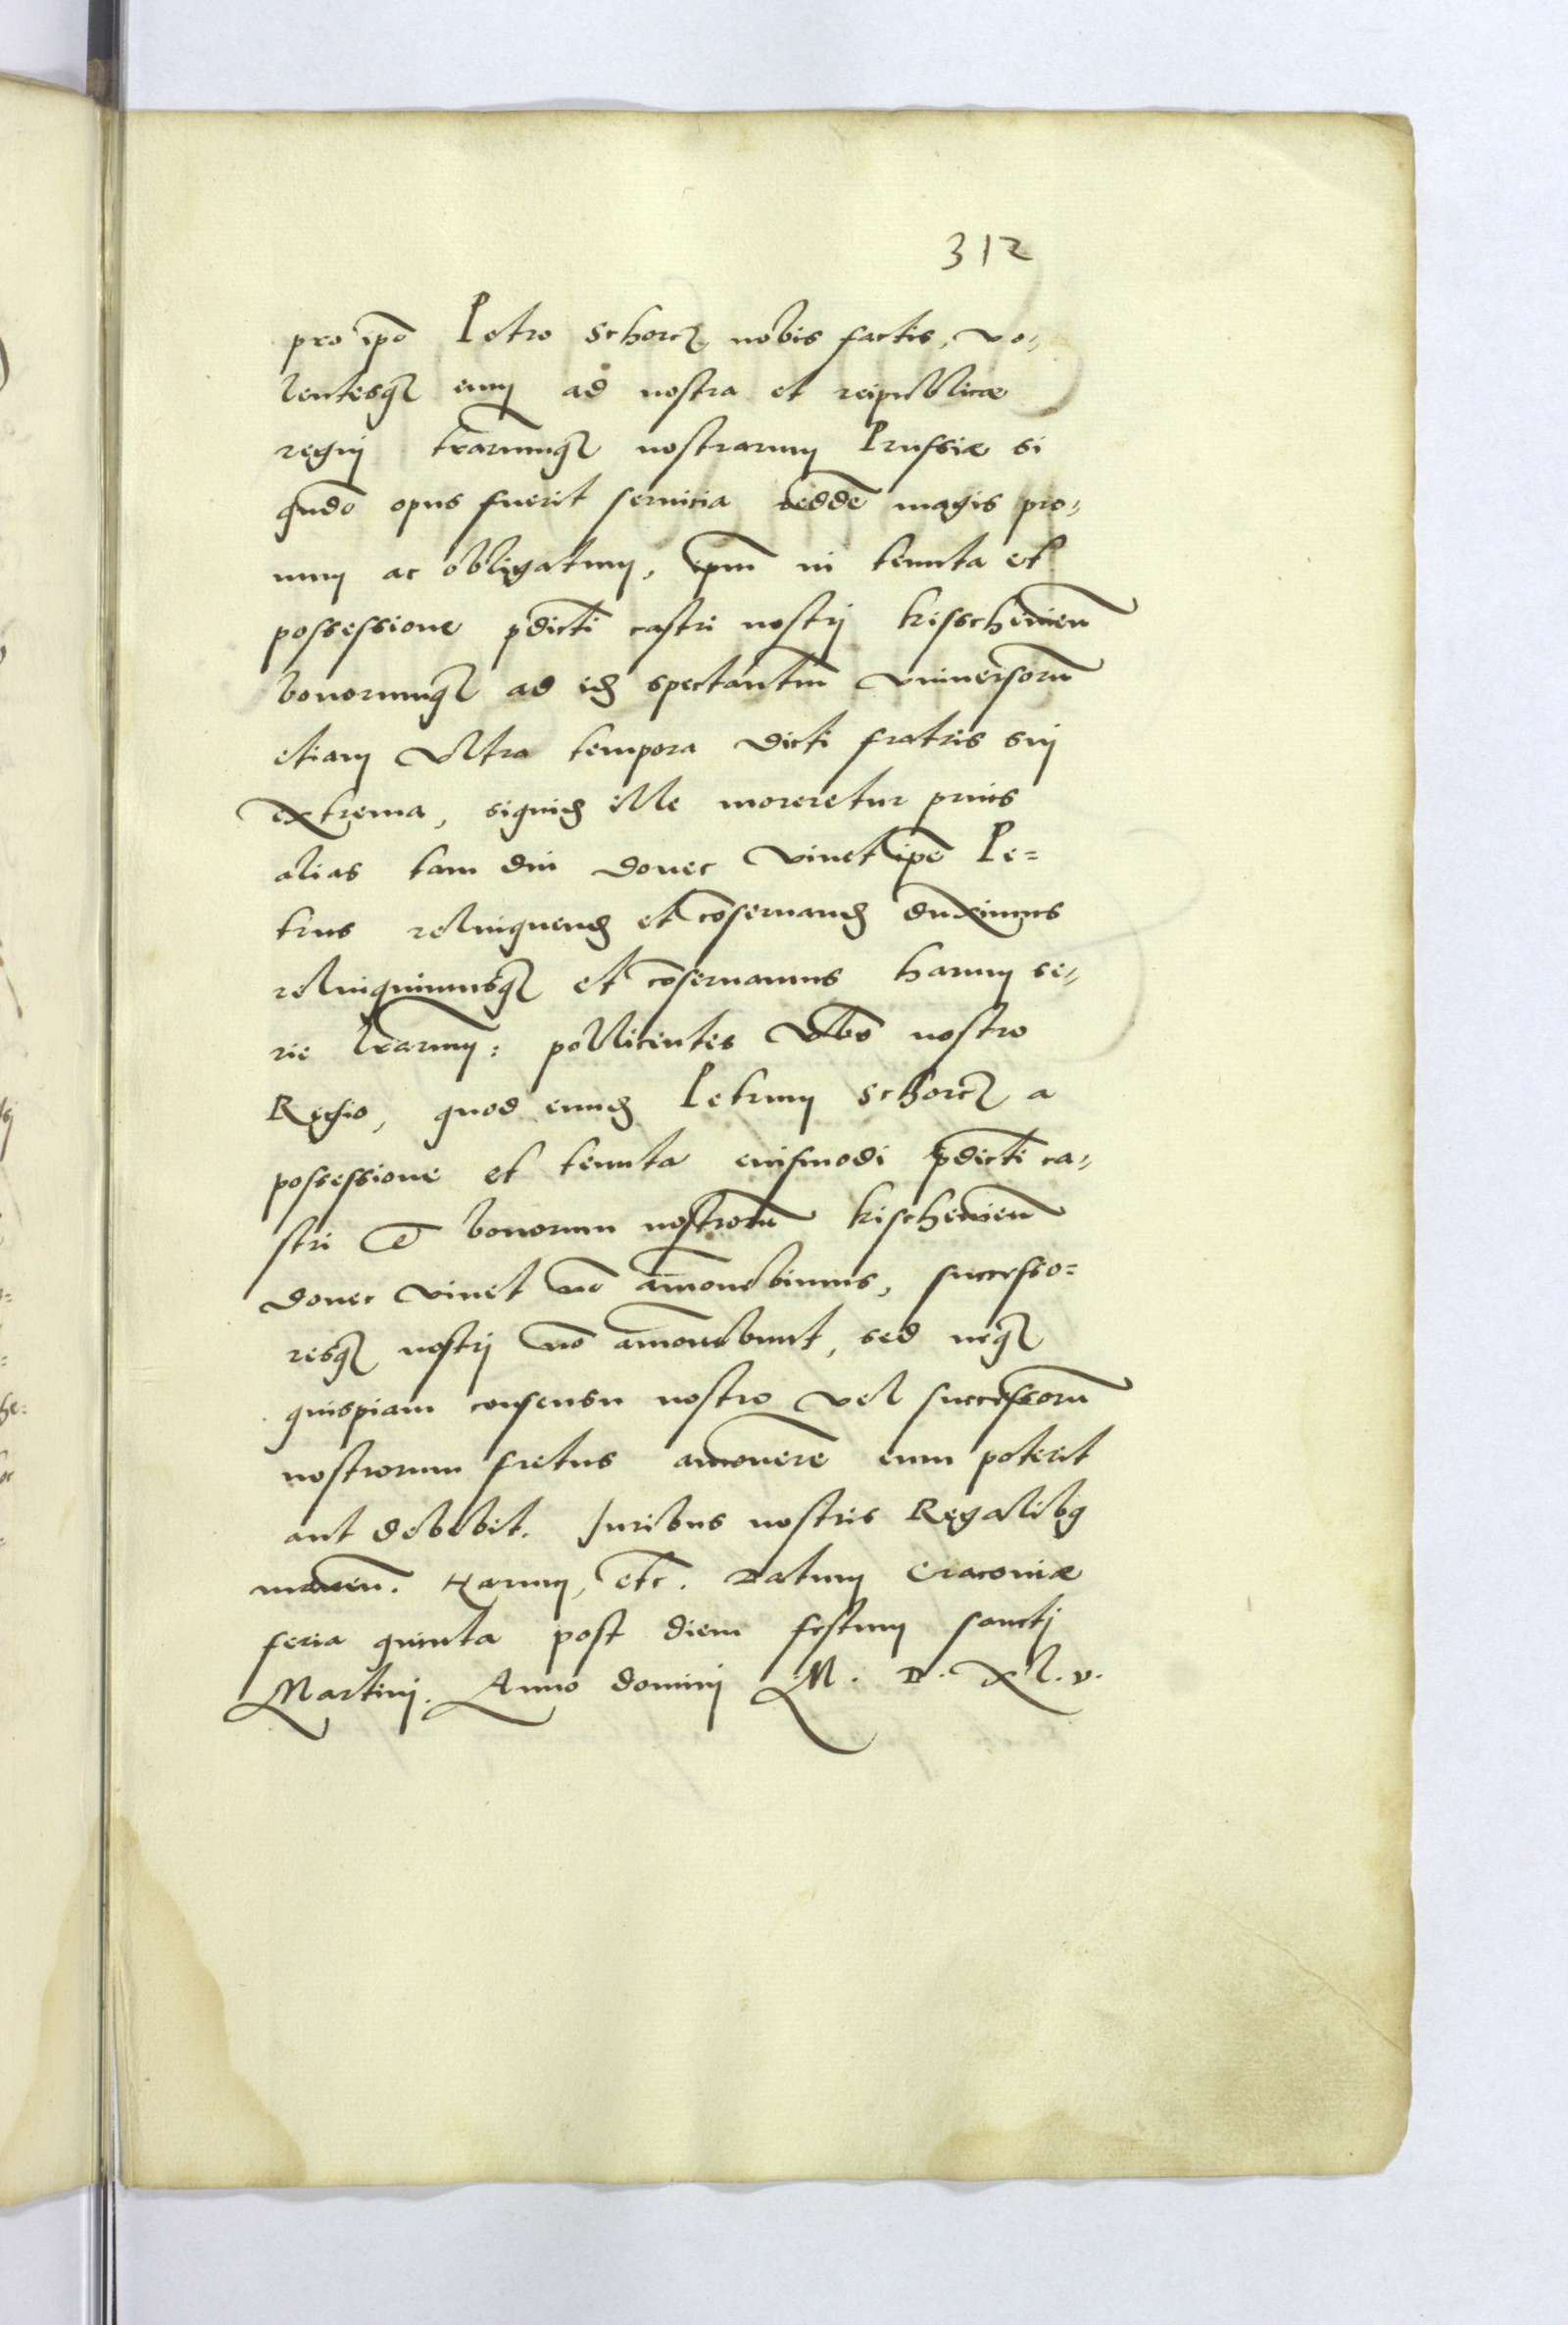 312
pro ipō Petro Schorcz nobis factis, vo-
lentesqz eum ad nostra et reipublicæ
regnj trarumqz nostrarum Prussiæ si
qndo opus fuerit seruicia reddē magis pro-
num ac obligatum, ipm in tenuta et
possessione pdicti castri nostrj kisscheuien̄
bonorumqz ad id spectantiū vniuersorū
etiam vltra tempora dicti fratris suj
extrema, siquid ille moreretur prius
alias tam diu donec viuet ipē Pe=
trus relinquend et cōseruand duximus
relinquimusqz et cōseruamus harum se-
rie lrarum: pollicentes Vbō nostro
Regio, quod eund Petrum Schorcz a
possessione et tenuta eiusmodi pdicti ca-
stri et bonorum nostrorū kischeuien̄
donec viuet nō amouebimus, successo=
resqz nostrj nō amouebunt, sed neqz
quispiam consensu nostro vel successorū
nostrorum fretus amouere eum poterit
aut debebit. Juribus nostris Regalibg
manen̄. Harum, etc. Datum Cracouiæ
feria quinta post diem festum sanctj
Martinj. Anno dominj M. D. XL. v.